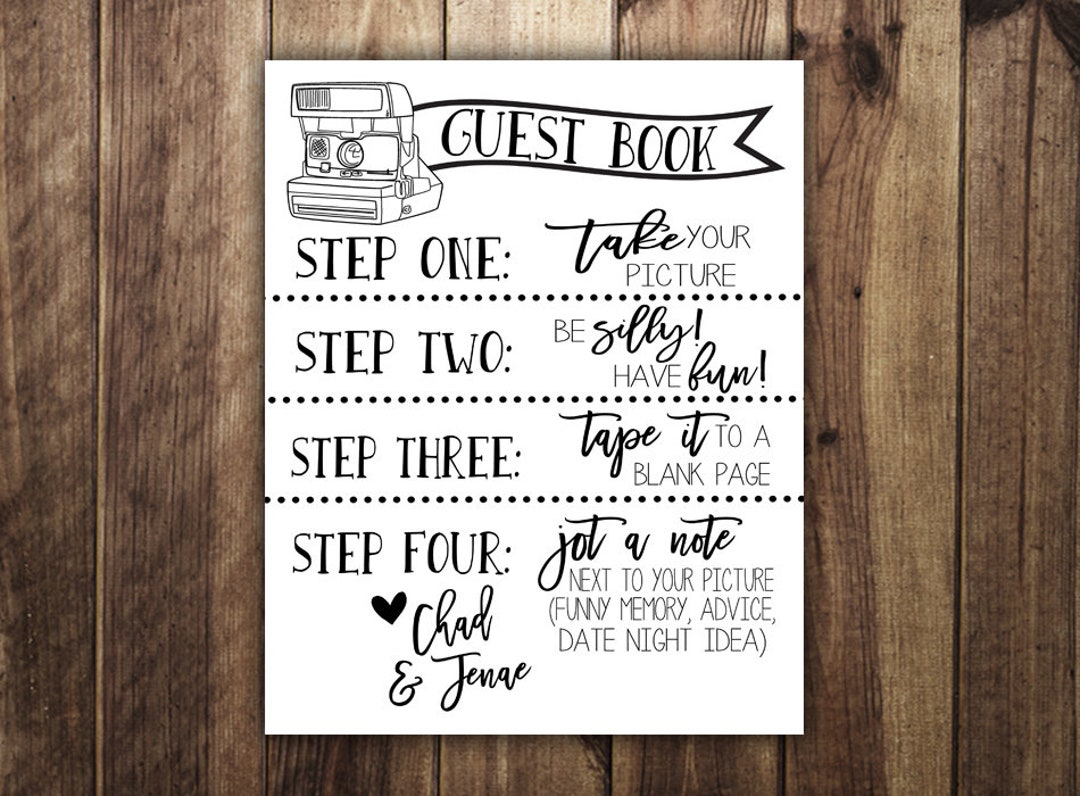 GUEST BOOK
STEP ONE: take YOUR
PICTURE
STEP TWO: BE silly!
HAVE fun!
STEP THREE: tape it TO A
BLANK PAGE
STEP FOUR: jot a note
NEXT TO YOUR PICTURE
(FUNNY MEMORY, ADVICE,
DATE NIGHT IDEA)
Chad
& Jenae